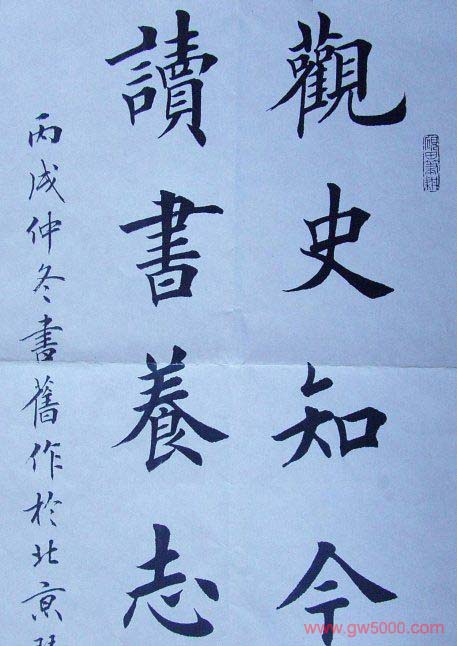 觀史知今
讀書養志
丙戌仲冬書舊作於北京
www.gw5000.com